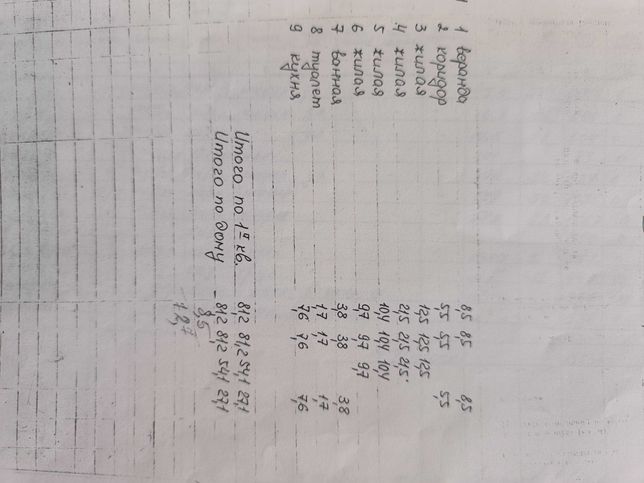 1 веранда 8,5 8,5 8,5
2 коридор 5,5 5,5 5,5
3 жилая 12,5 12,5 12,5
4 жилая 21,5 21,5 21,5
5 жилая 10,4 10,4 10,4
6 жилая 9,7 9,7 9,7
7 ванная 3,8 3,8 3,8
8 туалет 1,7 1,7 1,7
9 кухня 7,6 7,6 7,6
Итого по 1й кв. 81,2 81,2 54,1 27,1
Итого по дому - 81,2 81,2 54,1 27,1
8,5
72,7